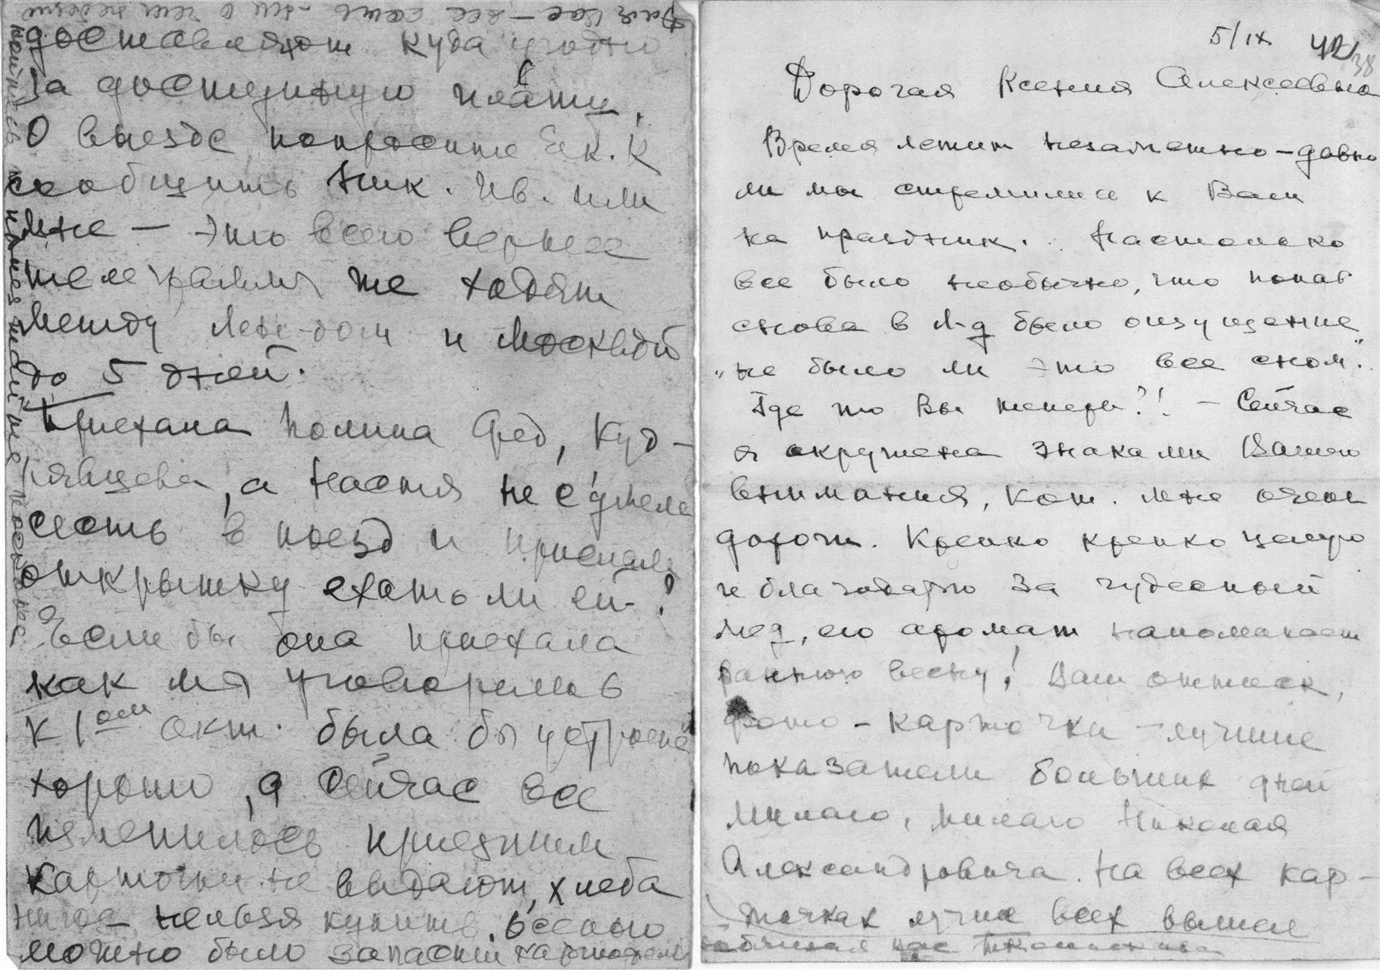 5/IX
38
Дорогая Ксения Алексеевна
Время летит незаметно – давно
ли мы стремились к Вам
на праздник. . Настолько
все было необычно, что попав
снова в Л-д было ощущение
„не было ли это все сном".
Где то Вы теперь?! – Сейчас
я окружена знаками Вашего
внимания, кот. мне очень
дороги. Крепко крепко целую
и благодарю за чудесный
мед, его аромат напоминает
раннюю весну! Ваш оттиск,
фото – карточки – лучшие
показатели больших дней
милого, милого Николая
Александровича. На всех кар-
точках лучше всех вышел
доставляют куда угодно
за доступную плату.
О выезде попросите Ек. К
сообщить Ник. Ив. или
мне – это всего вернее
телеграммы же ходят
между Лен-дом и Москвой
до 5 дней.
Приехала Полина Фед, Куд-
рявцева, а Настя не сумела
сесть в поезд и прислала
открытку ехать ли ей?
Если бы она приехала
как мы уговорились
к 1ому окт. была бы устроена
хорошо, а сейчас все
изменилось приезжим
карточки не выдают, хлеба
нигде нельзя купить. Весною
можно было запасти картофель